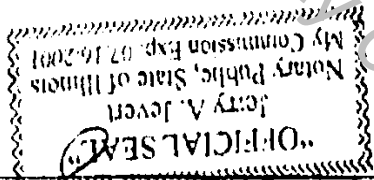 "OFFICIAL SEAL"
Jerry A. Jevert
Notary Public, State of Illinois
My Commission Exp. 07.16.2001